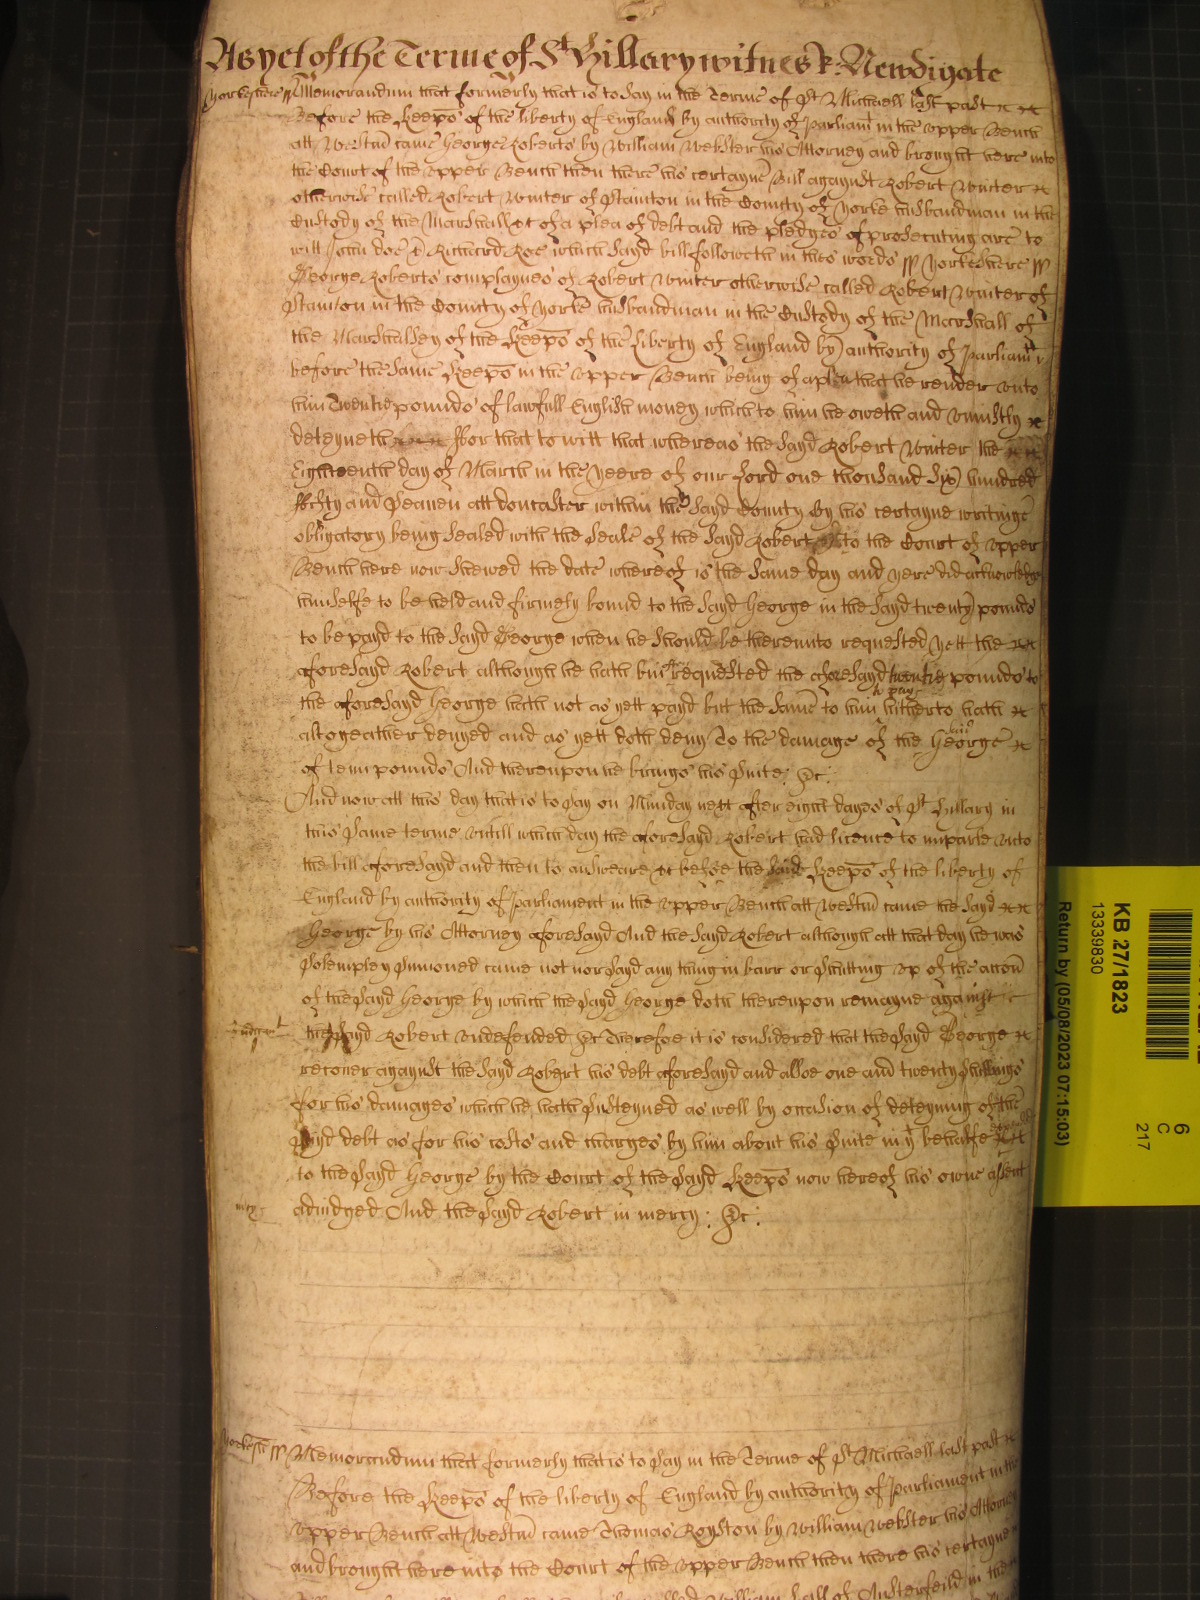 As yet of the Terme of St Hillary witnes R: Newdigate
Yorkeshere ss Memorandum that formerly that is to say in the Terme of St Michaell last past
Before the Keeps of the liberty of England by authority of Parliamt in the upper Bench
att Westm came George Roberts by William Webster his Attorney and brought here into
the Court of the upper Bench then there his certayne Bill agaynst Robert Winter
otherwise called Robert Winter of Stainton in the County of Yorke husbandman in the
Custody of the Marshall &c of a plea of debt and the pledges of prosecuting are to
witt John doe & Richard Roe which sayd bill followeth in thes words ss Yorkeshere ss
George Roberts complaynes of Robert Winter otherwise called Robert Winter of
Stainton in the County of Yorke husbandman in the Custody of the Marshall of
the Marshallsey of the Keeps of the Liberty of England by authority of Parliamt
before the same Keeps in the upper Bench being of a plea that he render unto
him Twentie pounds of lawfull English money which to him he oweth and uniustly
deteyneth ffor that to witt that whereas the sayd Robert Winter the
Eighteenth day of March in the yeere of our Lord one thousand six hundred
fforty and Seaven att doncaster within the sayd County By his certayne writinge
obligatory being sealed with the seale of the sayd Robert to the Court of upper
Bench here now shewed the date whereof is the same day and yere did acknowledge
himselfe to be held and firmely bound to the sayd George in the sayd twenty pounds
to be payd to the sayd George when he should be thereunto requested yett the
aforesayd Robert although he hath bin requested the aforesayd twentie pounds to
the aforesayd George hath not as yett payd but the same to him to pay hitherto hath
altogeather denyed and as yett doth deny To the damage of the George
of tenn pounds And thereupon he brings his suite: &c:
And now att this day that is to say on Munday next after eight dayes of St Hillary in
this same terme untill which day the aforesayd Robert had licence to imparle unto
the bill aforesayd and then to answeare &c before the said Keeps of the liberty of
England by authority of Parliament in the upper Bench att Westm came the sayd
George by his Attorney aforesayd And the sayd Robert although att that day he was
solempley sumoned came not nor sayd any thing in barr or shutting up of the accon
of the sayd George by which the sayd George doth thereupon remayne against
Judgmt the sayd Robert undefended &c Therefore it is considered that the sayd George
recover agaynst the sayd Robert his debt aforesayd and allsoe one and twenty shillings
for his damages which he hath susteyned as well by occasion of deteyning of the
sayd debt as for his costs and charges by him about his suite in yt behalfe
to the sayd George by the Court of the sayd Keeps now hereof his owne assent
mercy adiudged And the sayd Robert in mercy: &c:
Yorkesh ss Memorandum that formerly that is to say in the Terme of St Michaell last past
Before the Keeps of the liberty of England by authority of Parliament in the
upper Bench att Westm came Thomas Royston by William Webster his Attorney
and brought here into the Court of the upper Bench then there his certayne
William Hall of Austerfeild in the
KB 27/1823
13339830
Return by (05/08/2023 07:15:03)
6
C
217